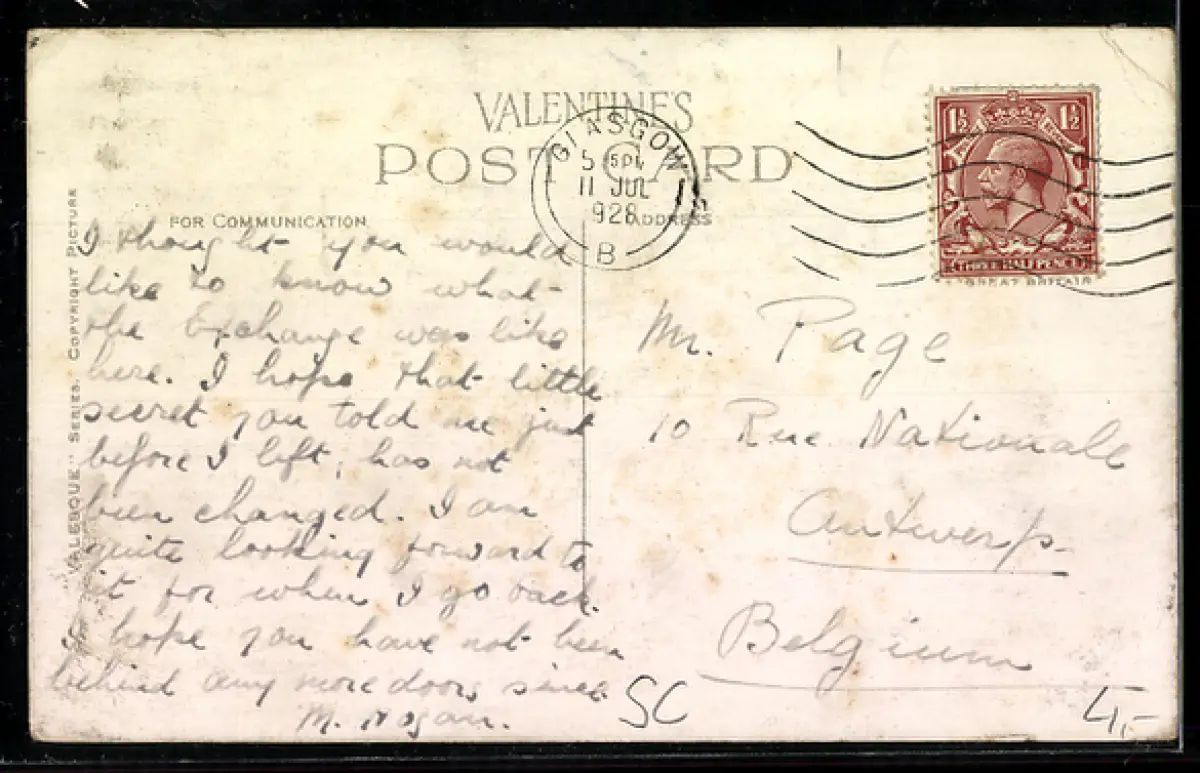 VALENTINE'S
POST CARD
FOR COMMUNICATION
ADDRESS
"VALESQUE" SERIES. COPYRIGHT PICTURE
GLASGOW
11 JUL
928
B
1½ 1½
THREE HALFPENCE
GREAT BRITAIN
I thought you would
like to know what
the Exchange was like
here. I hope that little
secret you told me just
before I left, has not
been changed. I am
quite looking forward to
it for when I go back.
I hope you have not been
behind any more doors since.
M.
Mr. Page
10 Rue Nationale
Antwerp
Belgium
SC
4,-